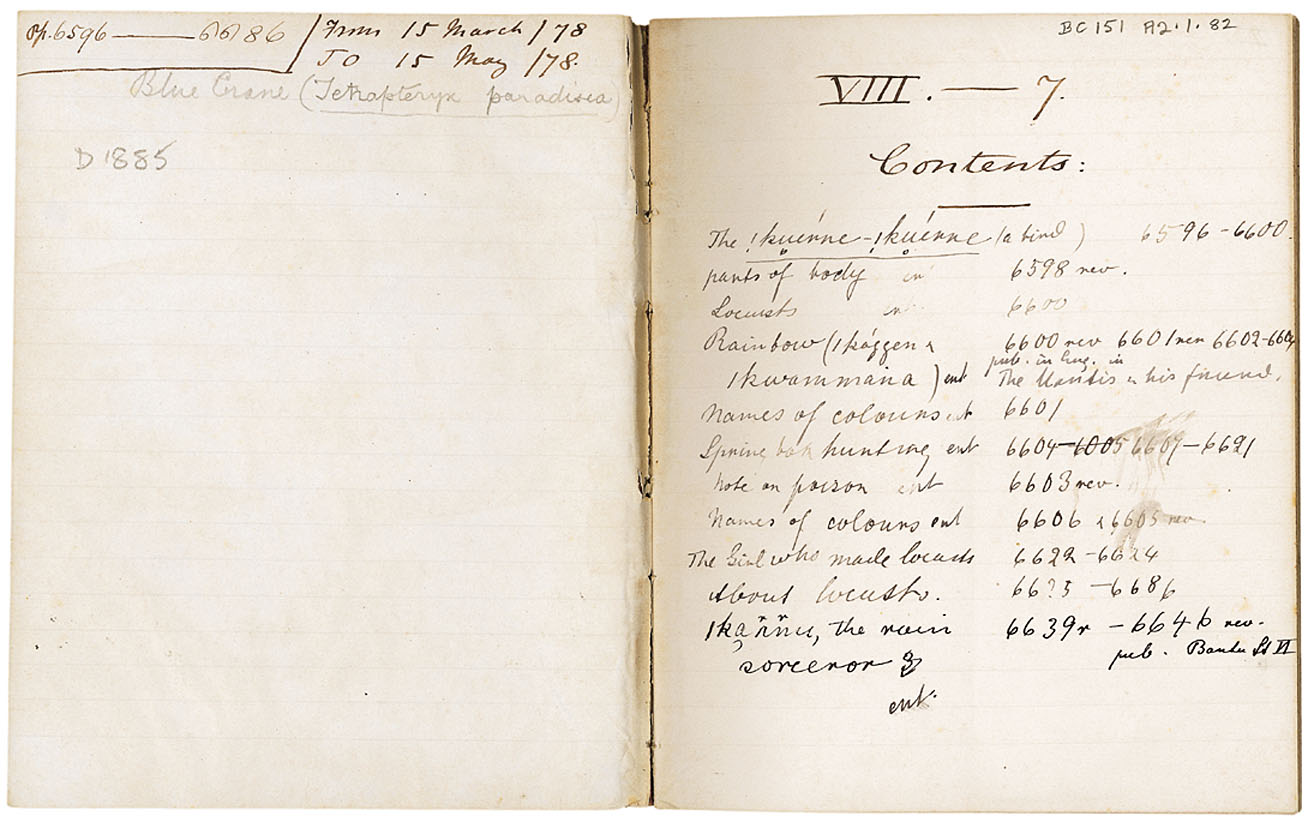 pp. 6596 —— 6686 / From 15 March /78
TO 15 May /78.
Blue Crane (Tetrapteryx paradisea)
D 1885
BC 151 A2.1.82
VIII. — 7.
Contents:
The !kuérre-!kuérre (a bird) 6596-6600.
parts of body ent 6598 rev.
Locusts ent 6600
Rainbow (ǀkággen & 6600 rev 6601 rev 6602-6604
pub. in Eng. in
ǀkwammana) ent The Mantis & his friend.
Names of colours ent 6601
Springbok hunting ent 6604-6005 6607-6621
Note on poison ent 6603 rev.
Names of colours ent 6606 & 6605 rev.
The Girl who made locusts 6622-6624
About locusts. 6625-6686
the rain 6639r - 6646 rev.
sorceror pub. Bantu St VI
ent.